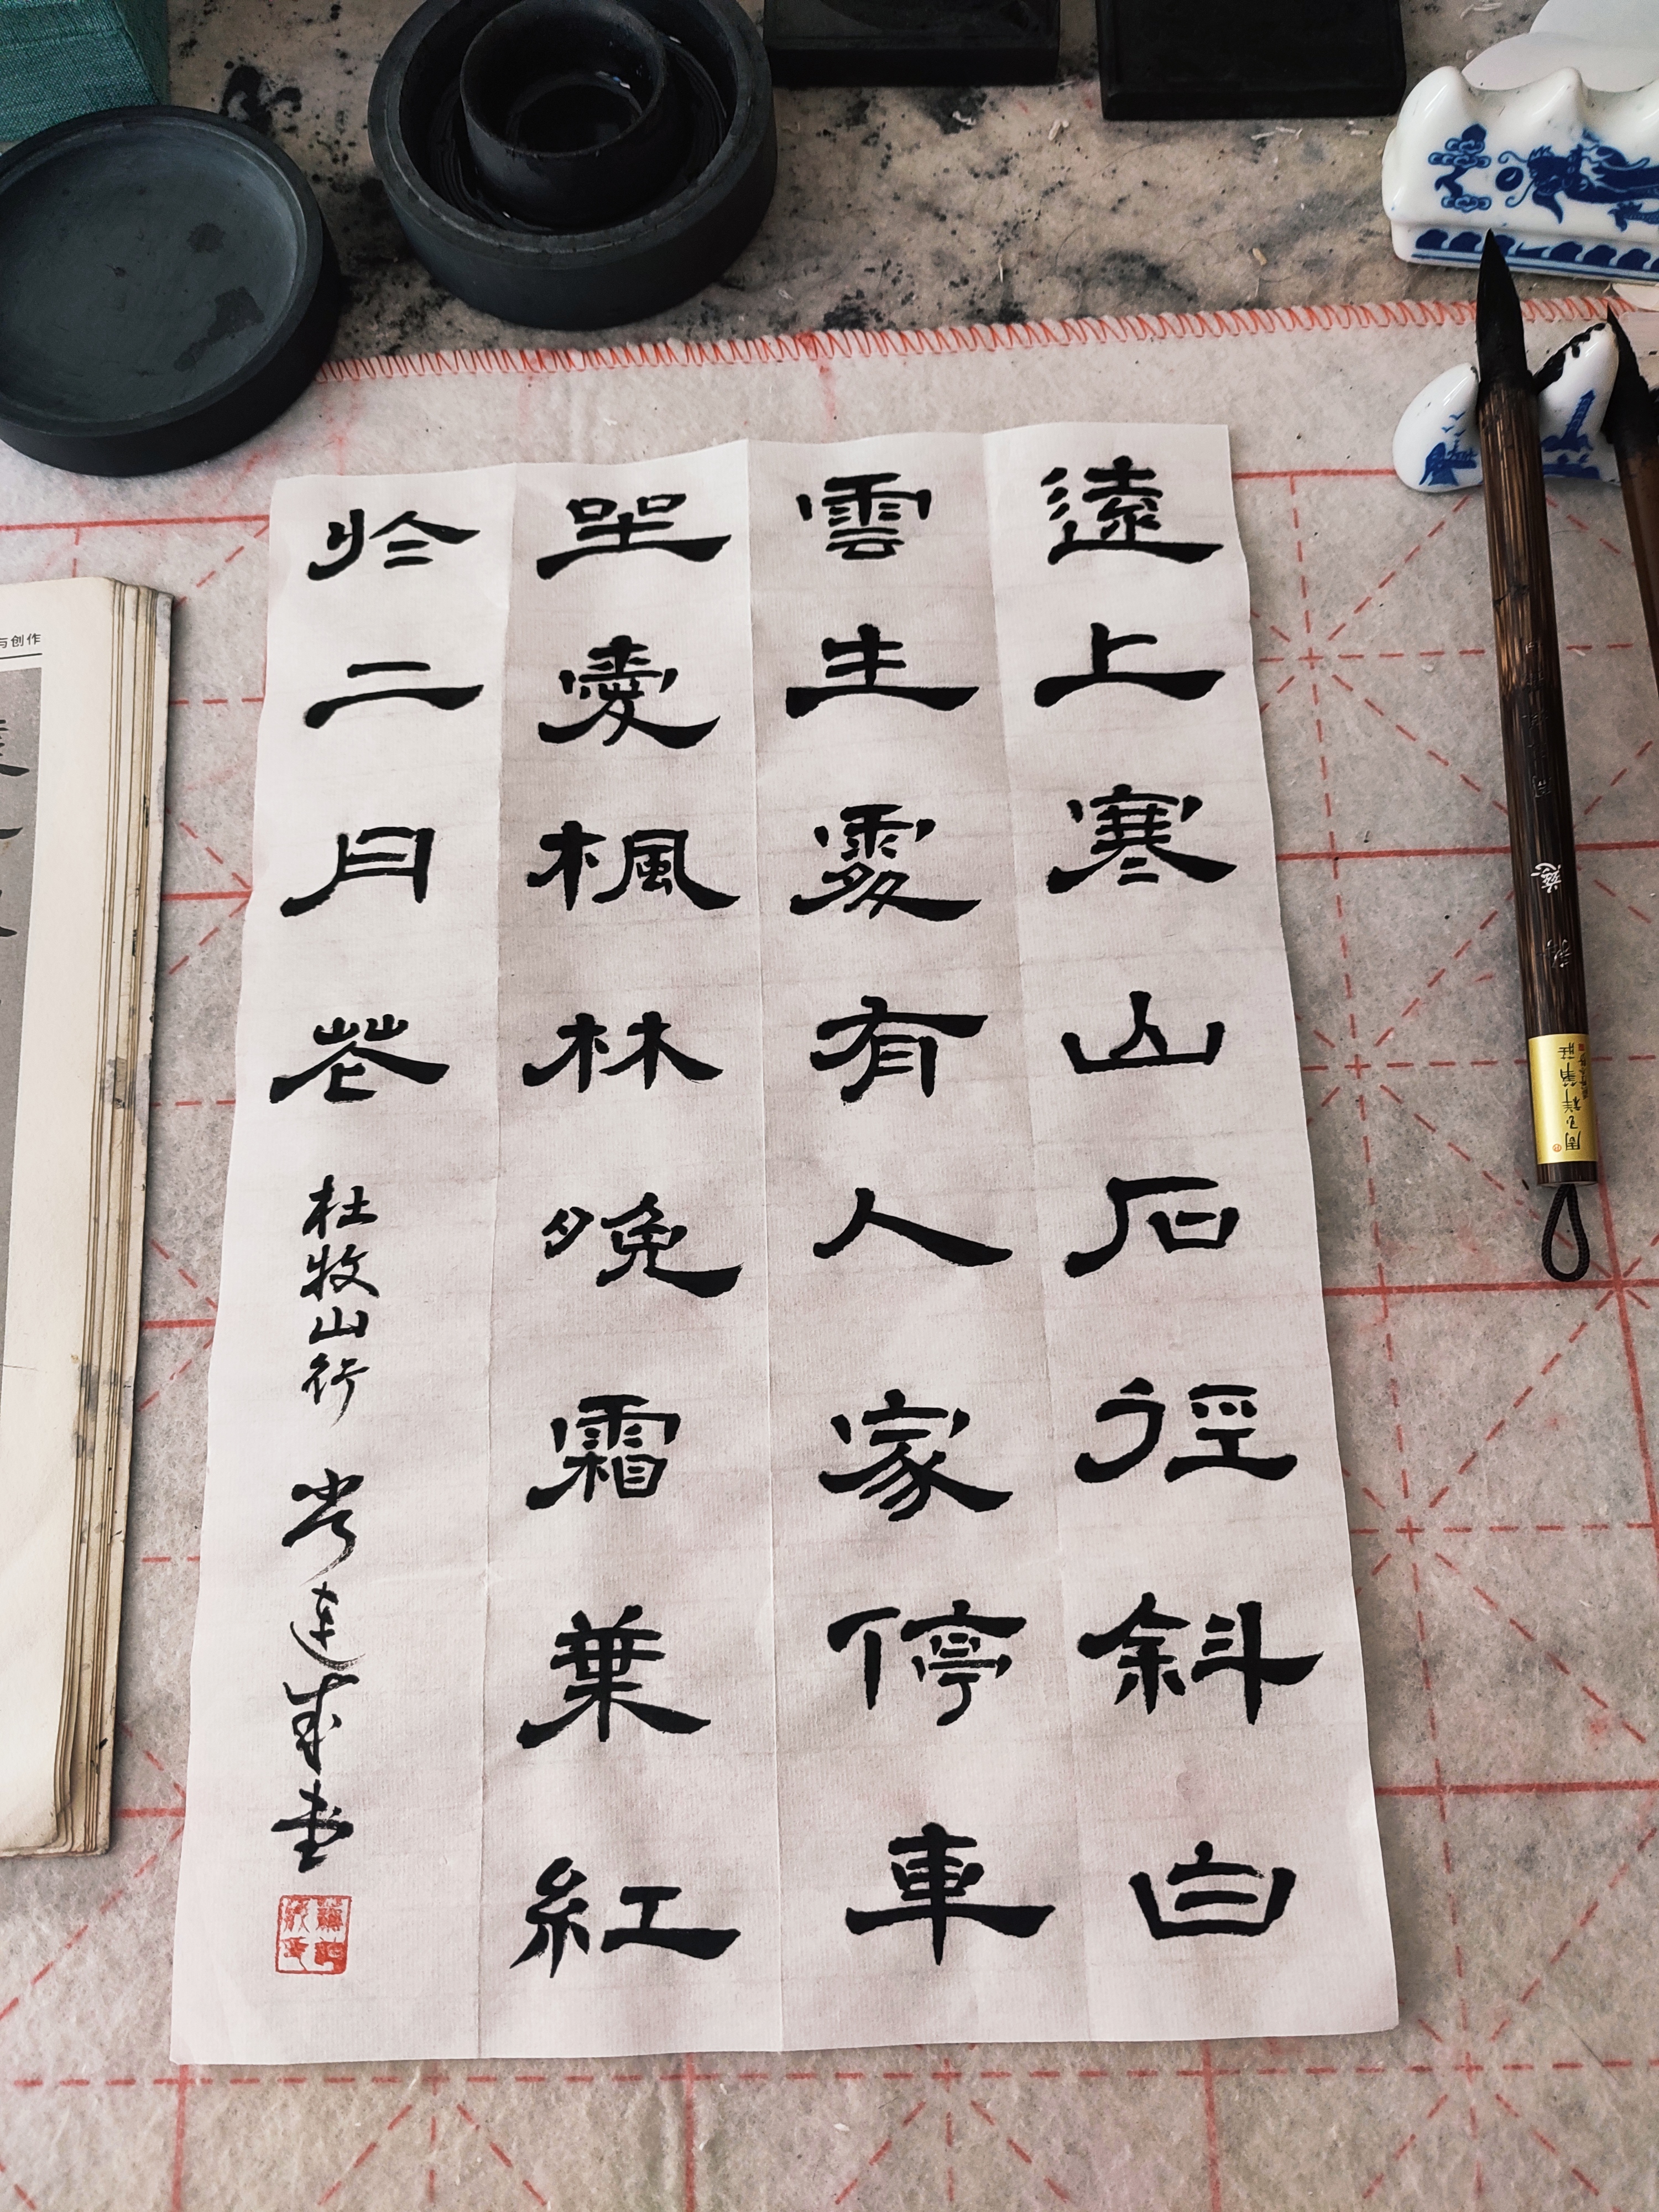 遠上寒山石徑斜白
雲生處有人家停車
坐愛楓林晚霜葉紅
於二月花 杜牧山行
与创作